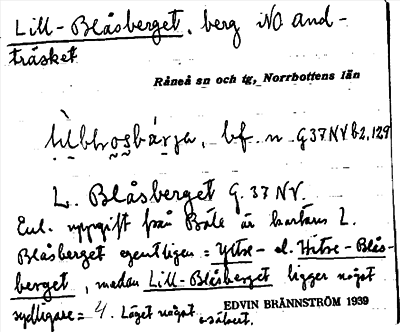 Lill-Blåsberget, berg i NO and-
träsket
Råneå sn och tg, Norrbottens län
bf. n G37NV b2,129
L. Blåsberget G. 37 NV.
Enl. uppgift från Böle är kartans L.
Blåsberget egentligen = Yttre- el. Hitre-Blås-
berget, medan Lill-Blåsberget ligger något
sydligare = 4. Läget något
osäkert.
EDVIN BRÄNNSTRÖM 1939